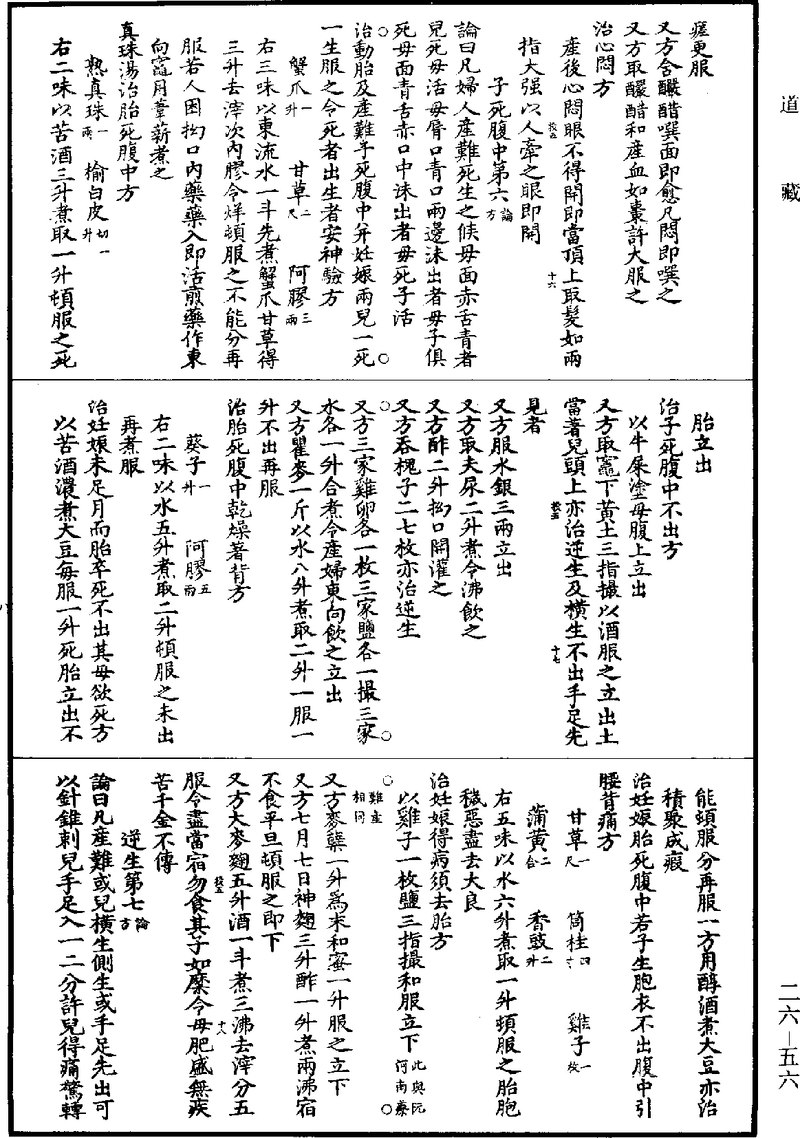 道藏
瘥更服
又方含釅醋噀面即愈凡悶即噀之
又方取釅醋和產血如棗許大服之
治心悶方
產後心悶眼不得開即當頂上取髮如兩
指大强以人牽之眼即開
子死腹中第六論方
論曰凡婦人產難死生之候母面赤舌青者
兒死母活母脣口青口兩邊沫出者母子俱
死母面青舌赤口中沫出者母死子活
治動胎及產難子死腹中并妊娠兩兒一死
一生服之令死者出生者安神驗方
蟹爪一升 甘草二尺 阿膠三兩
右三味以東流水一斗先煮蟹爪甘草得
三升去滓次內膠令烊頓服之不能分再
服若人困拗口內藥藥入即活煎藥作東
向竈用葦薪煮之
真珠湯治胎死腹中方
熟真珠一兩 榆白皮切一升
右二味以苦酒三升煮取一升頓服之死
胎立出
治子死腹中不出方
以牛屎塗母腹上立出
又方取竈下黃土三指撮以酒服之立出土
當著兒頭上亦治逆生及橫生不出手足先
見者
又方服水銀三兩立出
又方取夫尿二升煮令沸飲之
又方酢二升拗口開灌之
又方吞槐子二七枚亦治逆生
又方三家雞卵各一枚三家鹽各一撮三家
水各一升合煮令產婦東向飲之立出
又方瞿麥一斤以水八升煮取二升一服一
升不出再服
治胎死腹中乾燥著背方
葵子一升 阿膠五兩
右二味以水五升煮取二升頓服之未出
再煮服
治妊娠未足月而胎卒死不出其母欲死方
以苦酒濃煮大豆每服一升死胎立出不
能頓服分再服一方用醇酒煮大豆亦治
積聚成瘕
治妊娠胎死腹中若子生胞衣不出腹中引
腰背痛方
甘草一尺 筒桂四寸 雞子一枚
蒲黃二合 香豉二升
右五味以水六升煮取一升頓服之胎胞
穢惡盡去大良
治妊娠得病須去胎方
以雞子一枚鹽三指撮和服立下此與阮河南療
難產相同
又方麥糵一升爲末和蜜一升服之立下
又方七月七日神麯三升酢一升煮兩沸宿
不食平旦頓服之即下
又方大麥麴五升酒一斗煮三沸去滓分五
服令盡當宿勿食其子如糜令母肥盛無疾
苦千金不傳
逆生第七論方
論曰凡產難或兒橫生側生或手足先出可
以針錐刺兒手足入一二分許兒得痛驚轉
二六—五六